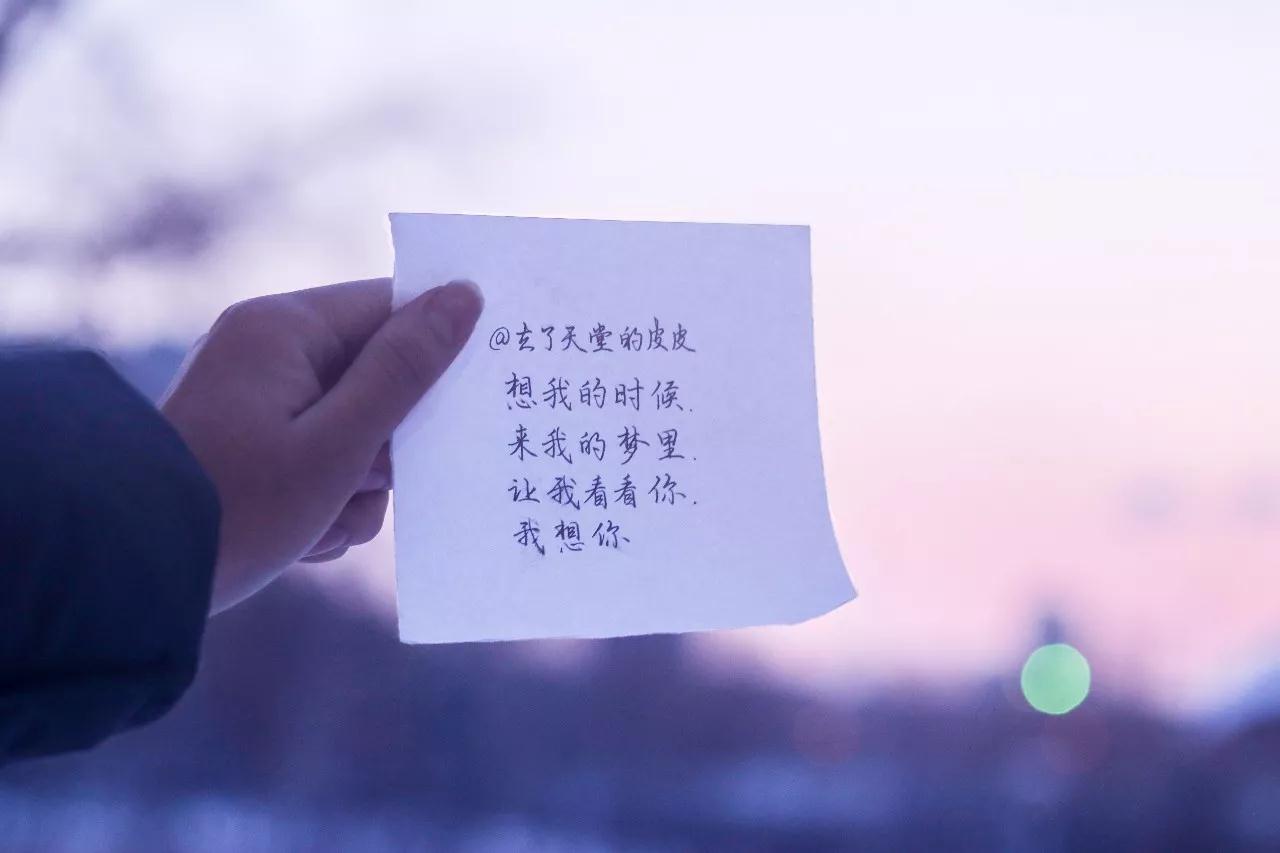 @去了天堂的皮皮
想我的时候.
来我的梦里.
让我看看你.
我想你